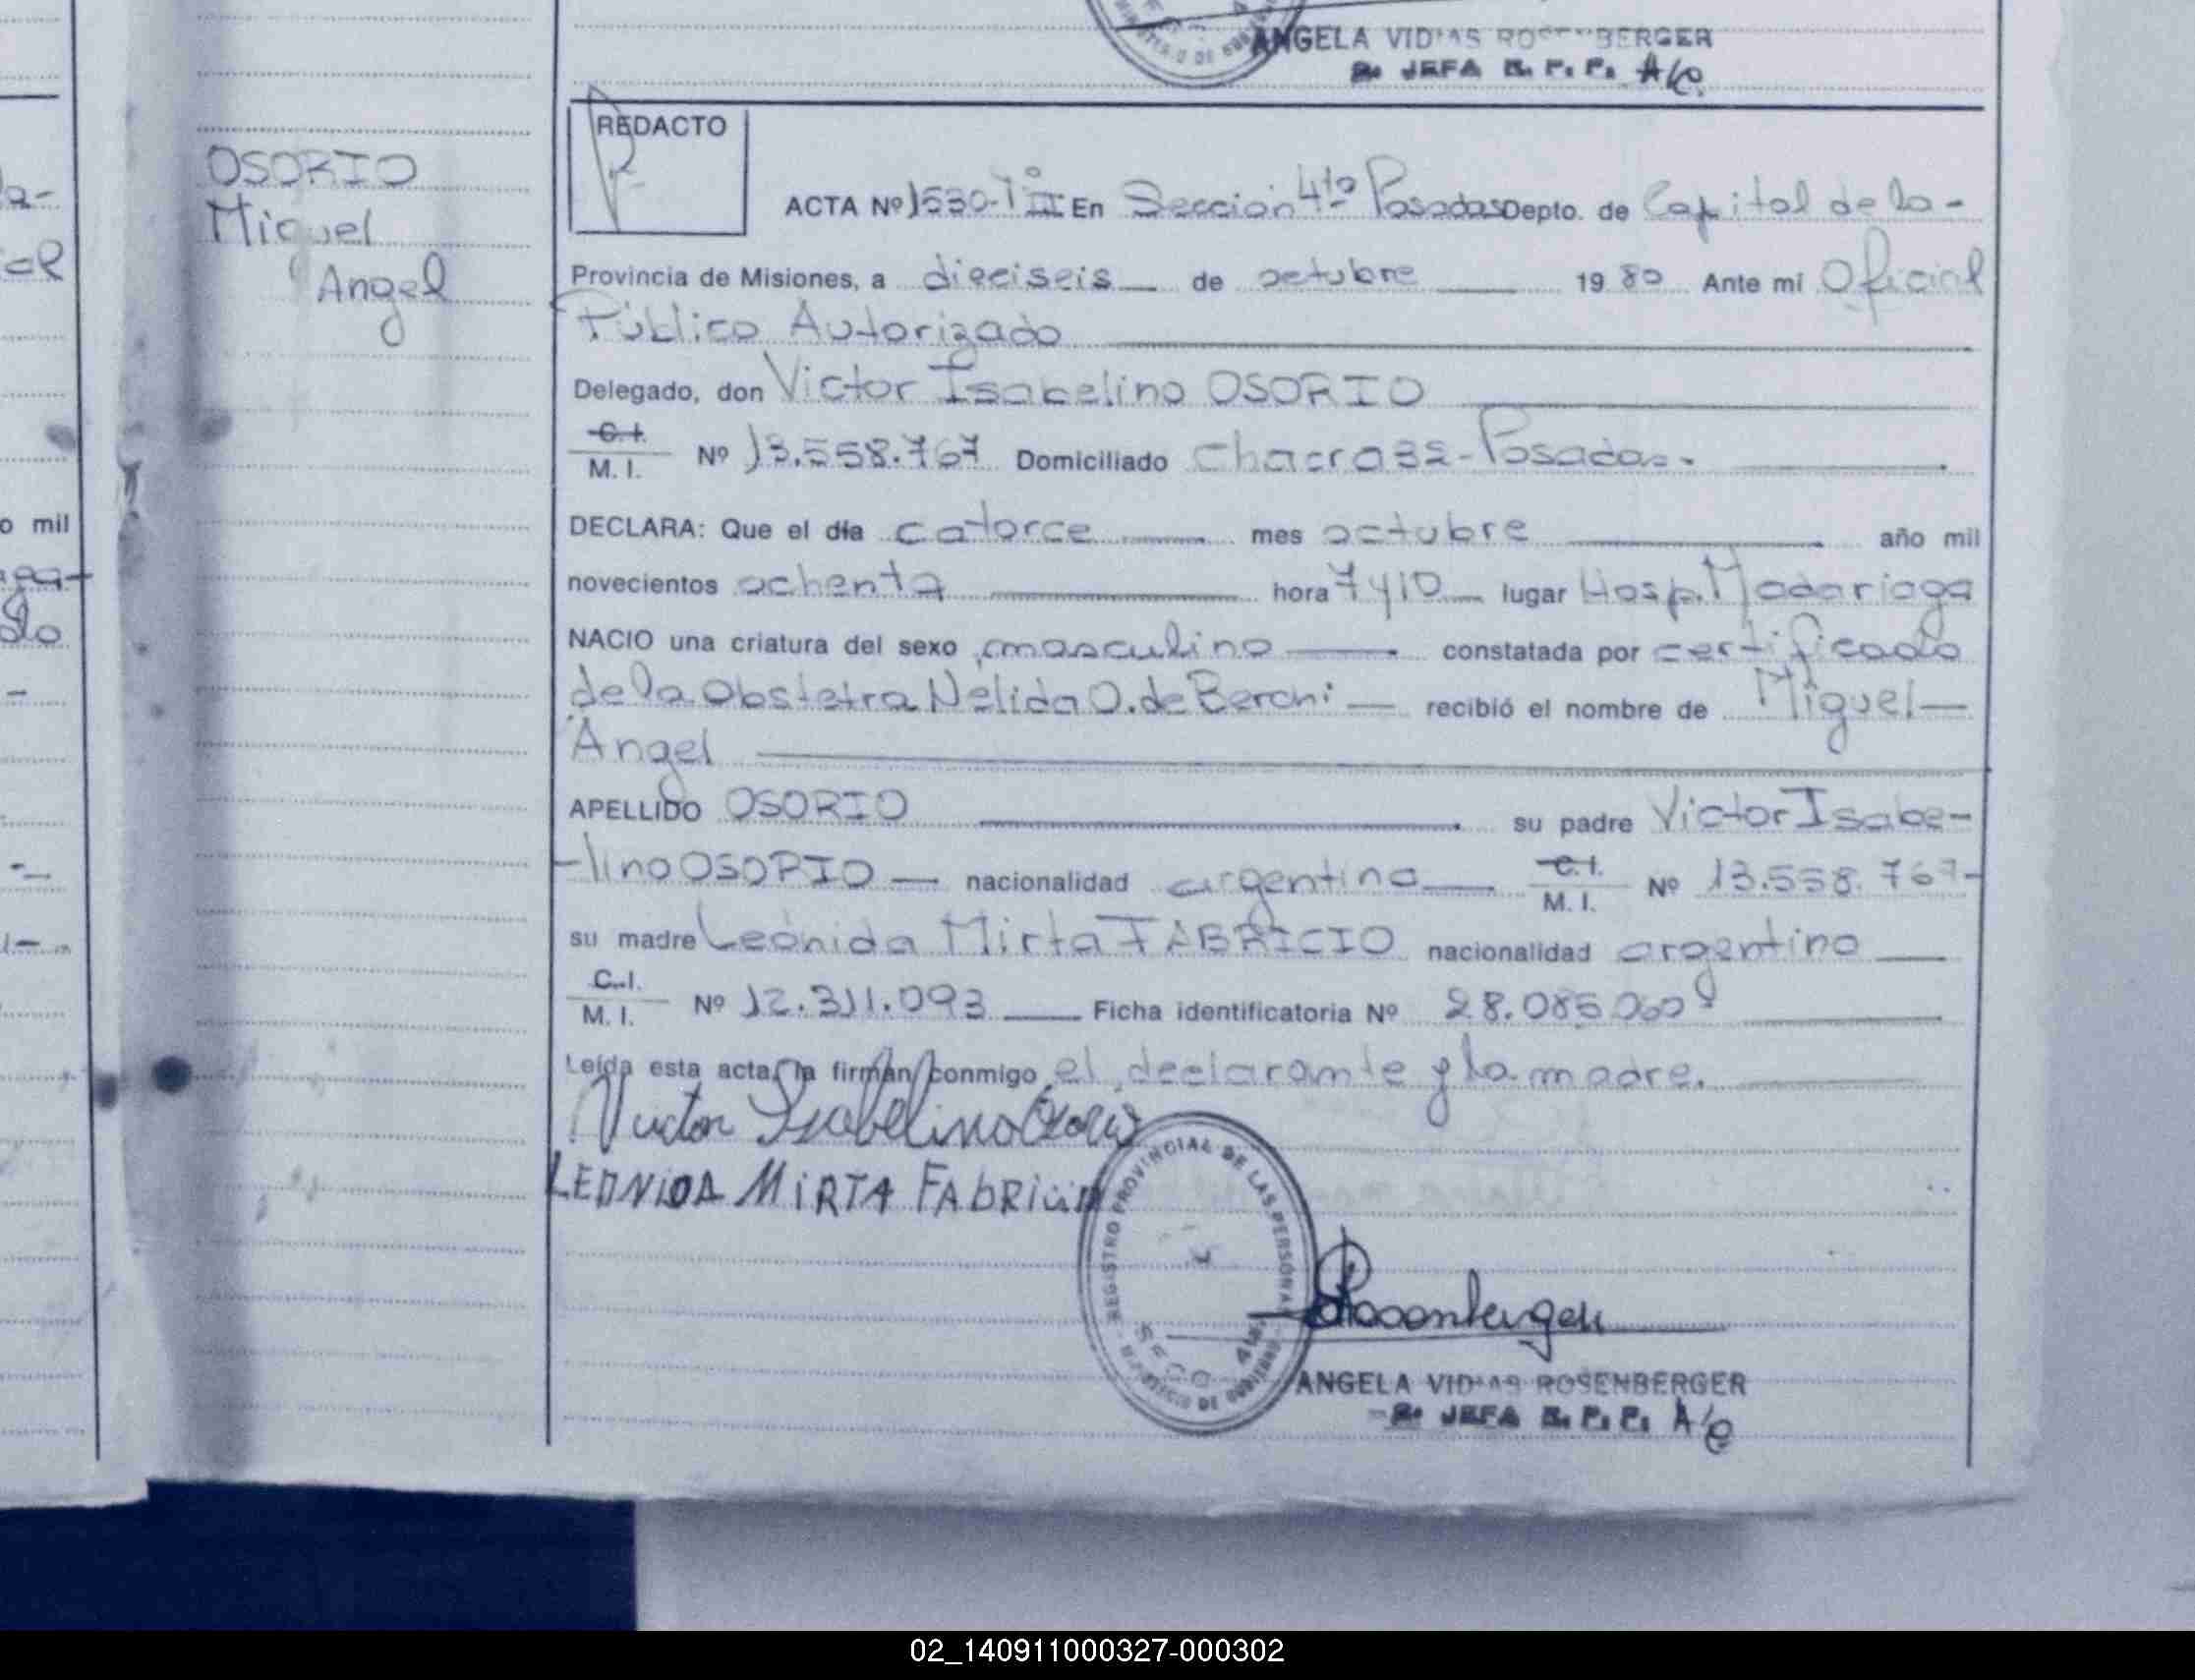 ANGELA VIDIAS ROSENBERGER
JEFA R. P. P. A/C.
REDACTO
OSORIO
Miguel
Angel
ACTA Nº 1530-Tº III En Sección 4ta Posadas Depto. de Capital de la-
Provincia de Misiones, a dieciseis de octubre 19 80 Ante mi Oficial
Público Autorizado
Delegado, don Victor Isabelino OSORIO
C.I. M. I. Nº 13.558.767 Domiciliado Chacra 32-Posadas.
DECLARA: Que el día catorce mes octubre año mil
novecientos ochenta hora 7 y 10 lugar Hosp. Madariaga
NACIO una criatura del sexo masculino constatada por certificado
de la Obstetra Nélida O. de Berchi recibió el nombre de Miguel
Angel
APELLIDO OSORIO su padre Victor Isabe-
-lino OSORIO nacionalidad argentina C.I. M. I. Nº 13.558.767-
su madre Leónida Mirta FABRICIO nacionalidad argentina
C.I. M. I. Nº 12.311.093 Ficha identificatoria Nº 28.085.060
Leída esta acta, la firman conmigo el declarante y la madre.
Victor Isabelino Osorio
LEONIDA MIRTA FABRICIO
REGISTRO PROVINCIAL DE LAS PERSONAS
MINISTERIO DE GOBIERNO
SECC. 4ta.
Rosenberger
ANGELA VIDIAS ROSENBERGER
JEFA R. P. P. A/C
o mil
02_140911000327-000302